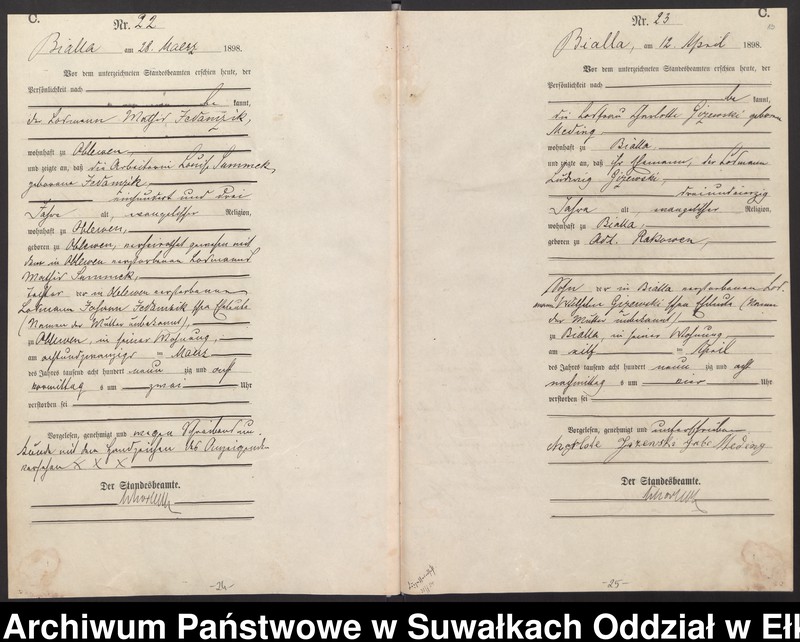 C.
Nr. 22
Bialla am 28. Maerz 1898.
Vor dem unterzeichneten Standesbeamten erschien heute, der
Persönlichkeit nach
be kannt,
der Losmann Mathis Jedamzik,
wohnhaft zu Oblewen,
und zeigte an, daß die Arbeiterin Louise Sammek,
geborene Jedamzik,
einhundert und drei
Jahre alt, evangelischer Religion,
wohnhaft zu Oblewen,
geboren zu Oblewen, verheirathet gewesen mit
dem in Oblewen verstorbenen Losmann
Mathis Sammek,
Tochter der in Oblewen verstorbenen
Losmann Johann Jedamzik schen Eheleute
(Namen der Mutter unbekannt),
zu Oblewen, in seiner Wohnung,
am achtundzwanzigs ten Maerz
des Jahres tausend acht hundert neun zig und acht
vormittag s um zwei Uhr
verstorben sei
Vorgelesen, genehmigt und wegen Schreibensun-
kunde mit dem Handzeichen des Anzeigenden
versehen X X X
Der Standesbeamte.
-24-
C.
Nr. 23
Bialla, am 12. April 1898.
Vor dem unterzeichneten Standesbeamten erschien heute, der
Persönlichkeit nach
be kannt,
die Losfrau Charlotte Gizewski geborene
Meding
wohnhaft zu Bialla,
und zeigte an, daß ihr Ehemann, der Losmann
Ludwig Gizewski,
dreiundsiebzig
Jahre alt, evangelischer Religion,
wohnhaft zu Bialla,
geboren zu Adl. Rakowen,
Sohn der in Bialla verstorbenen Los-
mann Wilhelm Gizewski schen Eheleute (Namen
der Mutter unbekannt)
zu Bialla, in seiner Wohnung
am elf ten April
des Jahres tausend acht hundert neun zig und acht
nachmittag s um vier Uhr
verstorben sei
Vorgelesen, genehmigt und unterschrieben
Meding
Der Standesbeamte.
-25-
Archiwum Państwowe w Suwałkach Oddział w Eł